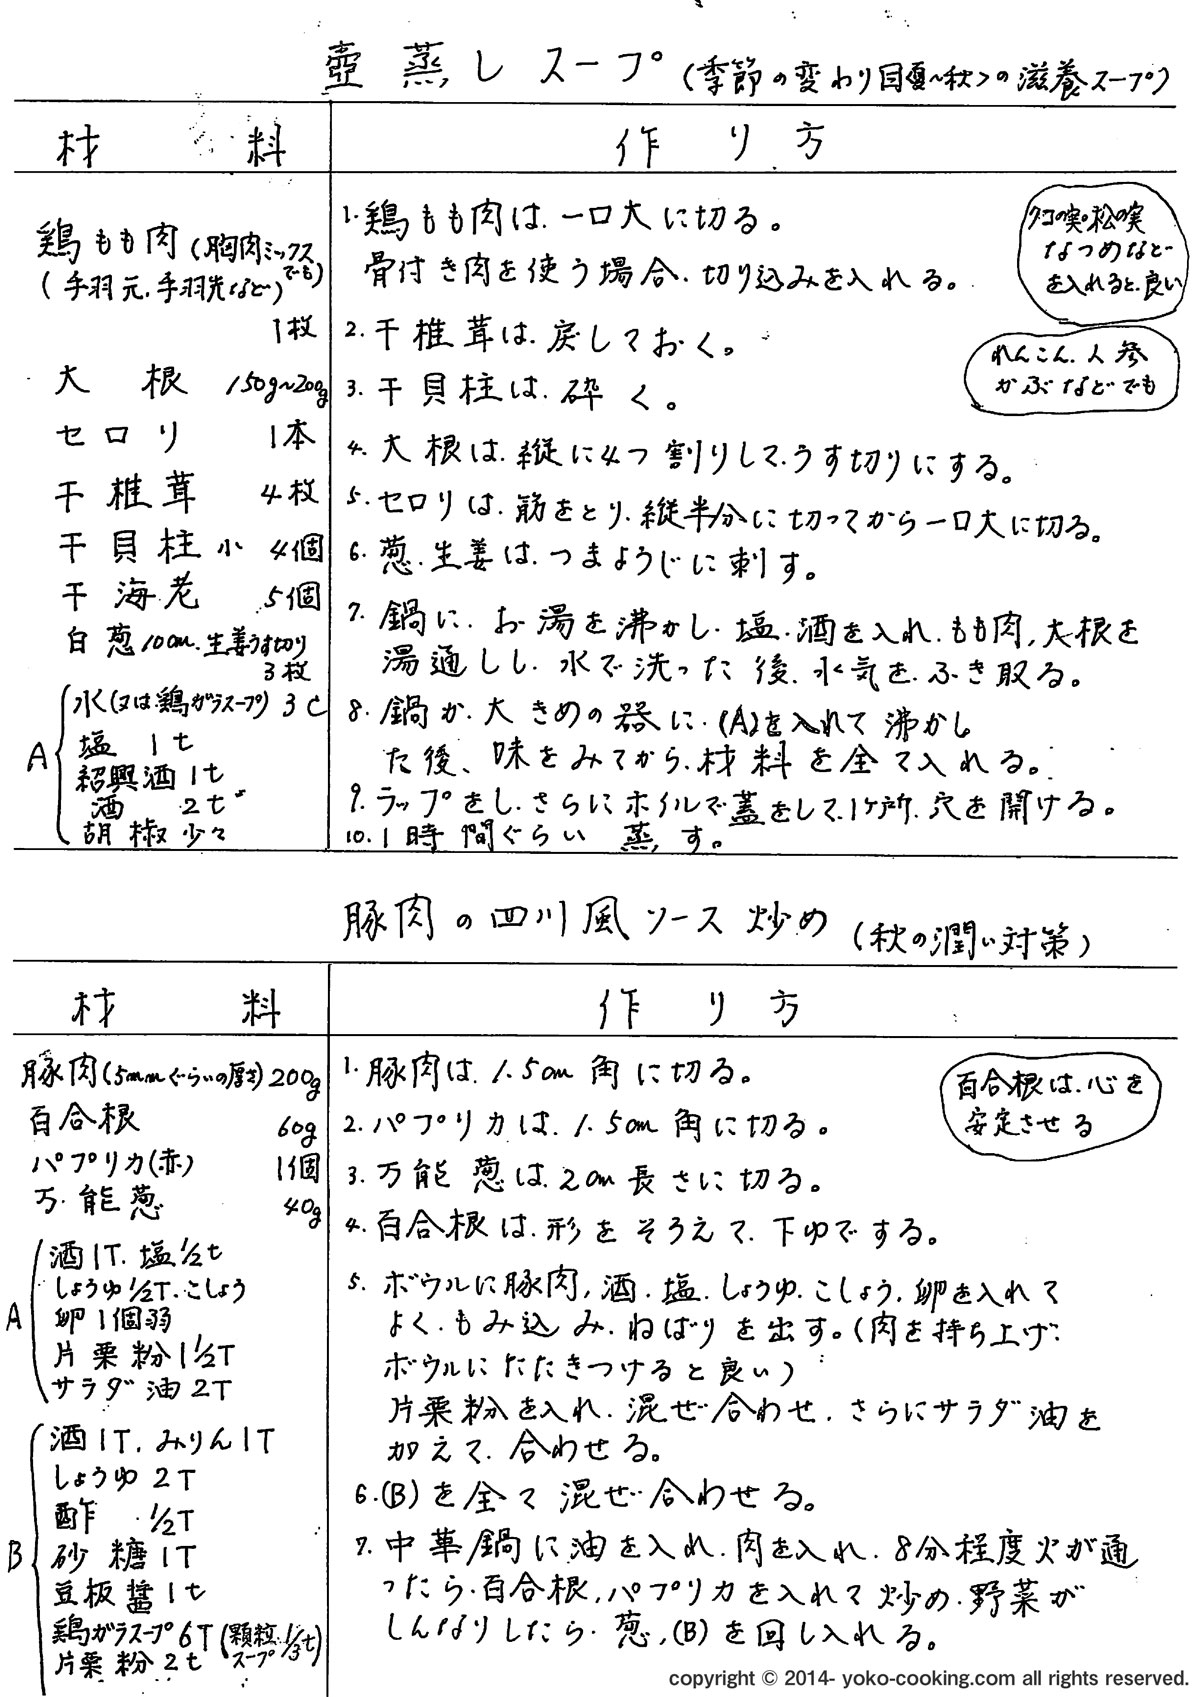 壺蒸しスープ(季節の変わり目<夏~秋>の滋養スープ)
材料
作り方
鶏もも肉(胸肉ミックスでも)
(手羽元、手羽先など)
1枚
大根 150g~200g
セロリ 1本
干椎茸 4枚
干貝柱小 4個
干海老 5個
白葱10cm、生姜うす切り
3枚
A
水(又は鶏ガラスープ) 3C
塩 1t
紹興酒1t
酒 2t
胡椒少々
1. 鶏もも肉は、一口大に切る。
骨付き肉を使う場合、切り込みを入れる。
2. 干椎茸は、戻しておく。
3. 干貝柱は、砕く。
4. 大根は、縦に4つ割りして、うす切りにする。
5. セロリは、筋をとり、縦半分に切ってから一口大に切る。
6. 葱、生姜は、つまようじに刺す。
7. 鍋に、お湯を沸かし、塩、酒を入れ、もも肉、大根を
湯通しし、水で洗った後、水気を、ふき取る。
8. 鍋か、大きめの器に、(A)を入れて沸かし
た後、味をみてから、材料を全て入れる。
9. ラップをし、さらにホイルで蓋をして、1ヶ所、穴を開ける。
10. 1時間ぐらい蒸す。
クコの実・松の実
なつめなど
を入れると、良い
れんこん、人参
かぶなどでも
豚肉の四川風ソース炒め(秋の潤い対策)
材料
作り方
豚肉(5mmぐらいの厚さ)200g
百合根 60g
パプリカ(赤) 1個
万能葱 40g
A
酒1T、塩1/2t
しょうゆ1/2T、こしょう
卵1個弱
片栗粉1 1/2T
サラダ油2T
B
酒1T、みりん1T
しょうゆ2T
酢 1/2T
砂糖1T
豆板醤1t
鶏ガラスープ6T(顆粒スープ1/3t)
片栗粉2t
1. 豚肉は、1.5cm角に切る。
2. パプリカは、1.5cm角に切る。
3. 万能葱は、2cm長さに切る。
4. 百合根は、形をそろえて、下ゆでする。
5. ボウルに豚肉、酒、塩、しょうゆ、こしょう、卵を入れて
よく、もみ込み、ねばりを出す。(肉を持ち上げ、
ボウルにたたきつけると良い)
片栗粉を入れ、混ぜ合わせ、さらにサラダ油を
加えて、合わせる。
6. (B)を全て混ぜ合わせる。
7. 中華鍋に油を入れ、肉を入れ、8分程度火が通
ったら、百合根、パプリカを入れて炒め、野菜が
しんなりしたら、葱、(B)を回し入れる。
百合根は、心を
安定させる
copyright © 2014- yoko-cooking.com all rights reserved.